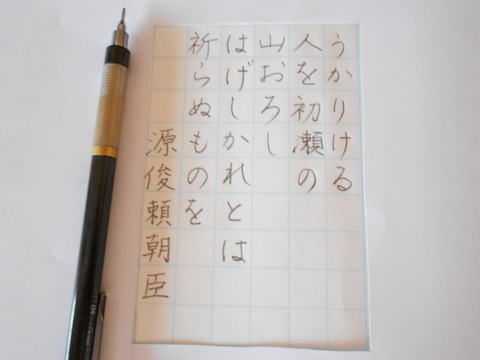 うかりける
人を初瀬の
山おろし
はげしかれとは
祈らぬものを
源俊頼朝臣